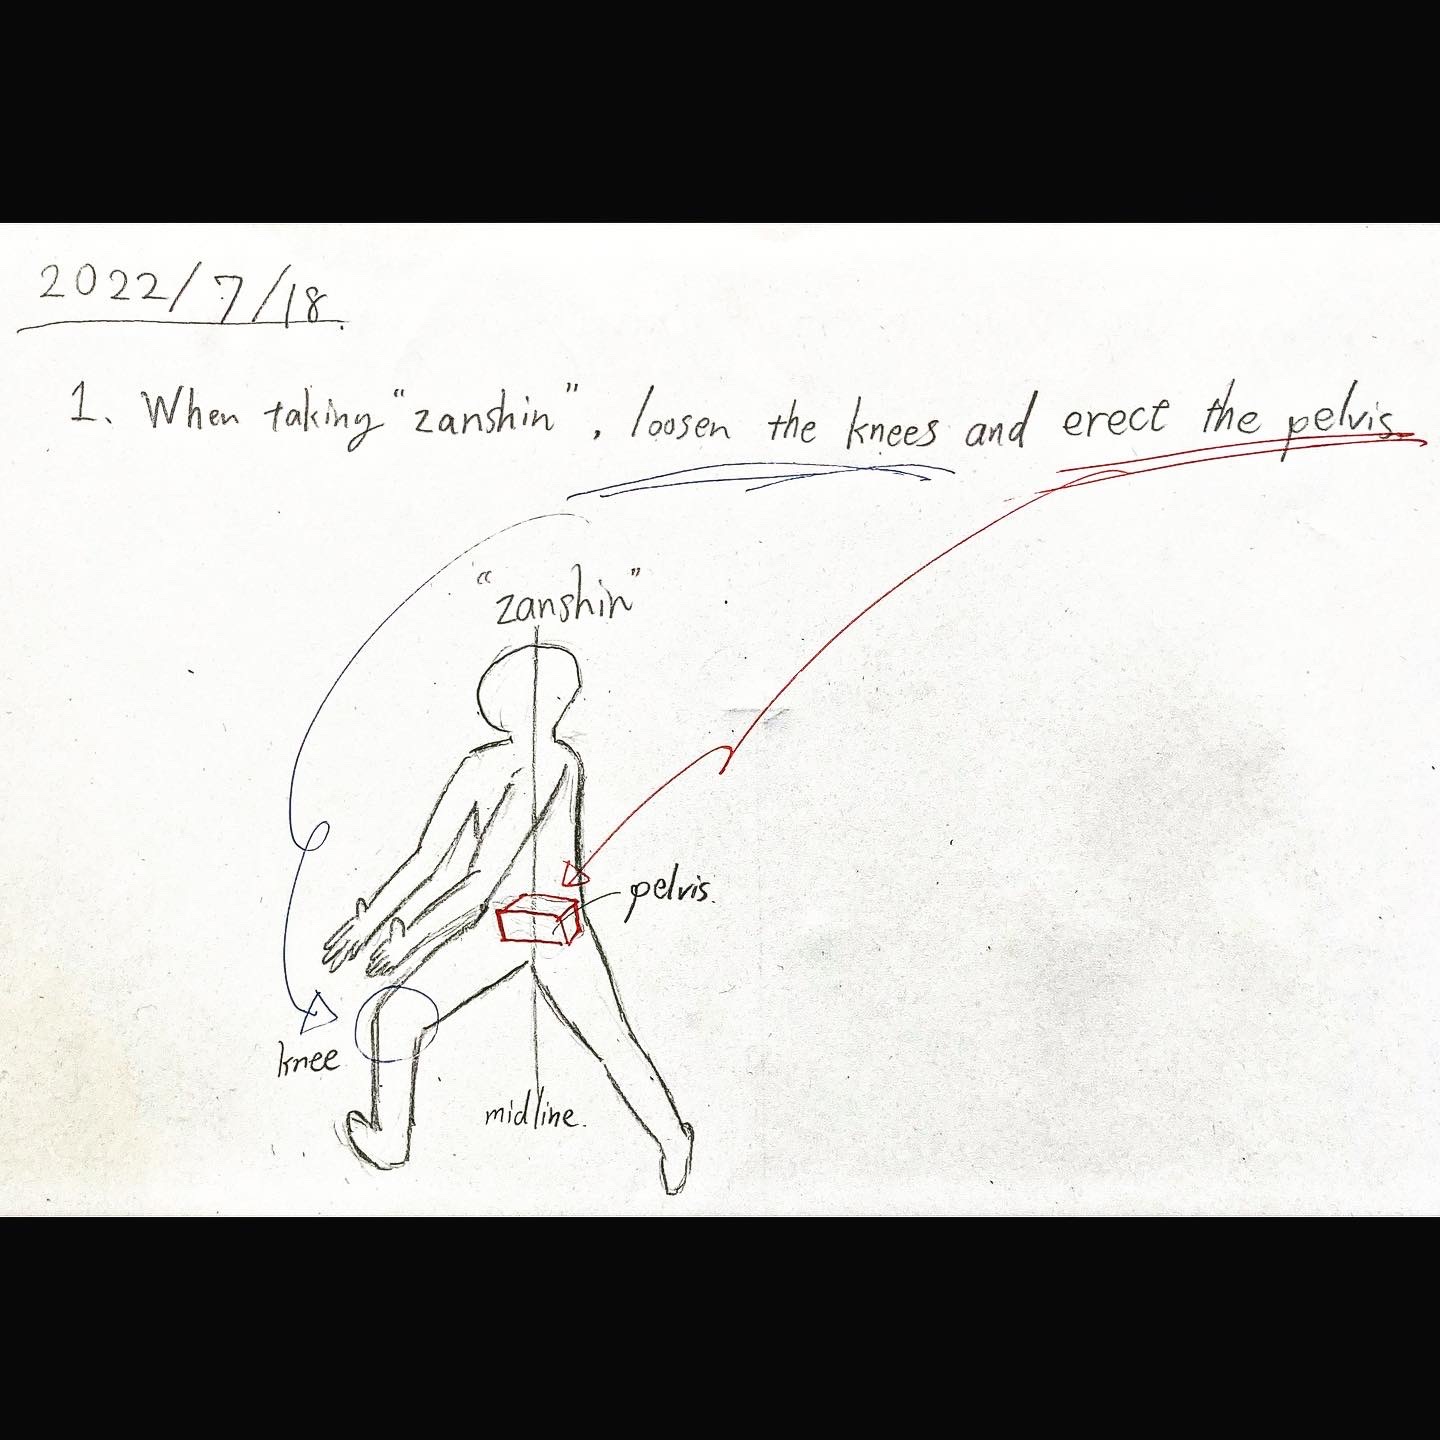 2022/7/18.
1. When taking "zanshin", loosen the knees and erect the pelvis.
"zanshin"
pelvis.
knee
midline.